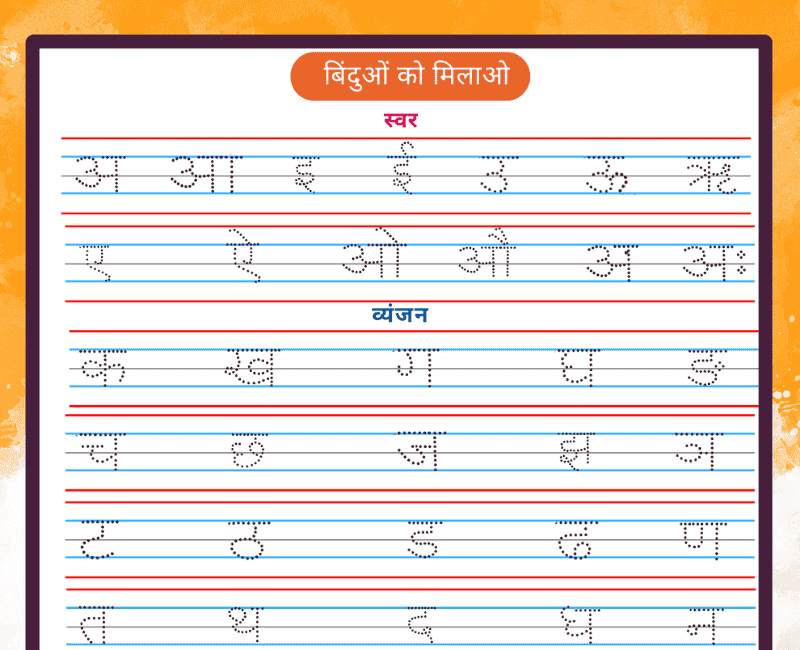 बिंदुओं को मिलाओ
स्वर
अ आ इ ई उ ऊ ऋ
ए ऐ ओ औ अं अः
व्यंजन
क ख ग घ ङ
च छ ज झ ञ
ट ठ ड ढ ण
त थ द ध न